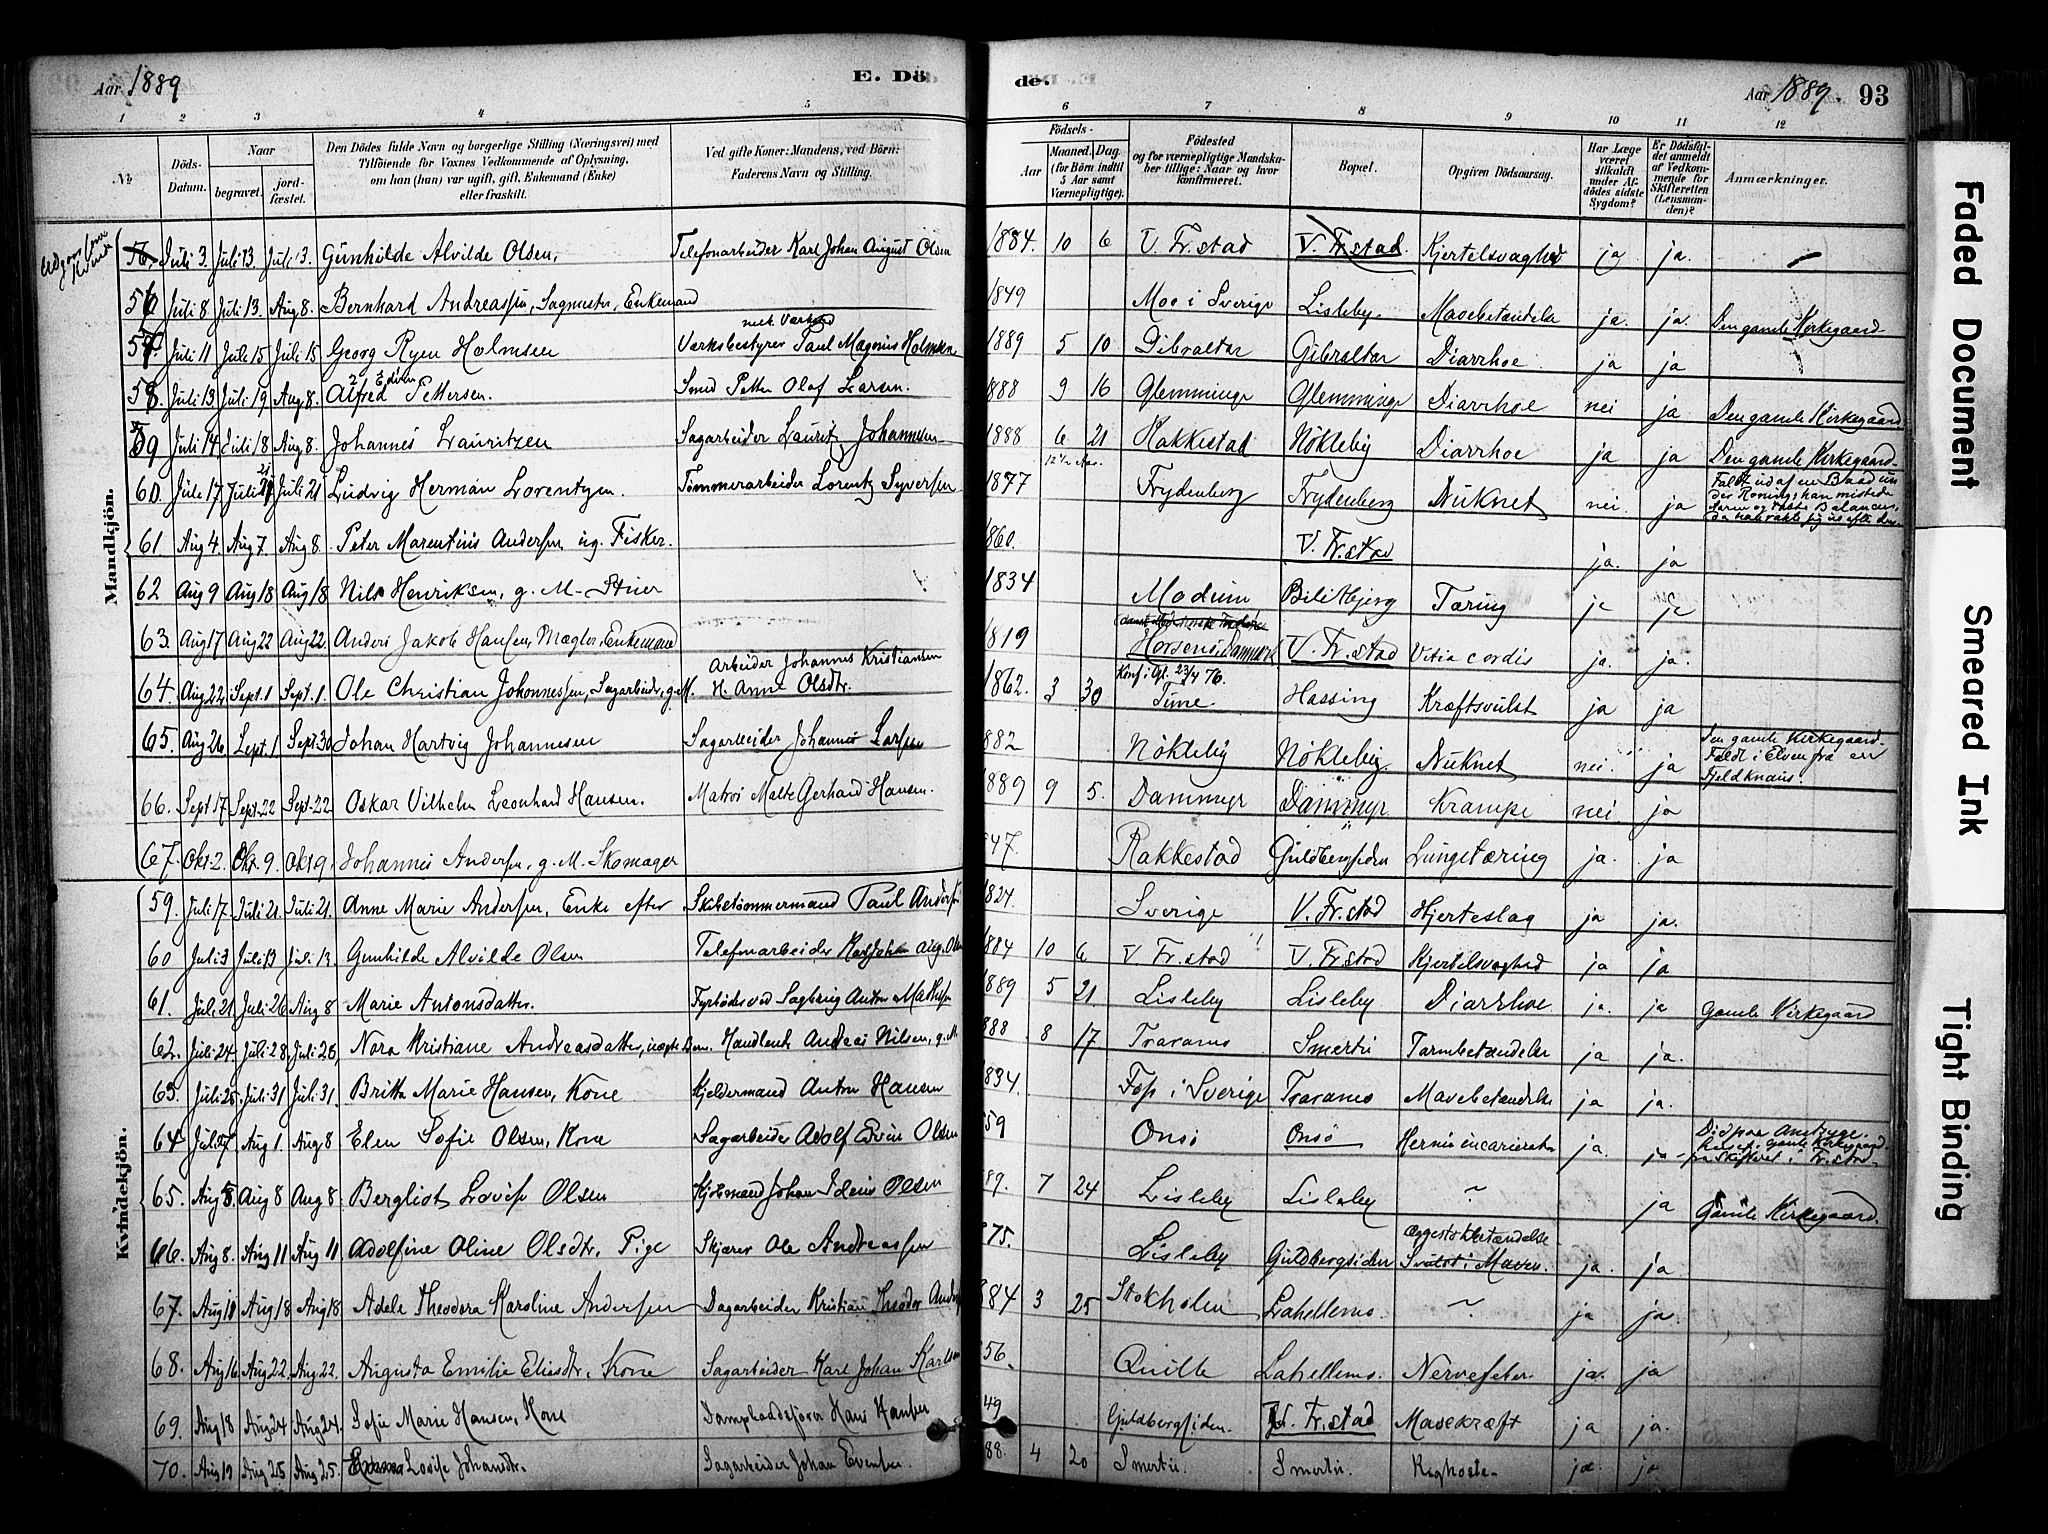 Aar 1889 E. Dö
de. Aar 1889. 93
1 2 3 4 5 6 7 8 9 10 11 12
No
Döds-Datum.
Naar
begravet.
jord-fæstet.
Den Dödes fulde Navn og borgerlige Stilling (Næringsvei) med
Tilföiende for Voxnes Vedkommende af Oplysning,
om han (hun) var ugift, gift, Enkemand (Enke)
eller fraskilt.
Ved gifte Koner: Mandens, ved Börn:
Faderens Navn og Stilling.
Födsels-
Aar
Maaned. Dag.
(for Börn indtil
5 Aar samt
Værnepligtige).
Födested
og for værnepligtige Mandska-
ber tillige: Naar og hvor
konfirmeret.
Bopæl.
Opgiven Dödsaarsag.
Har Læge
været
tilkaldt
under Af-
dödes sidste
Sygdom?
Er Dödsfal-
det anmeldt
af Vedkom-
mende for
Skifteretten
(Lensman-
den)?
Anmærkninger.
Mandkjön.
56. Juli 3. Juli 13. Juli 13. Gunhilde Alvilde Olsen, Telefonarbeider Karl Johan August Olsen 1884. 10 6 V. Fr.stad V. Fr.stad. Kjertelsvaghed ja ja.
56 Juli 8 Juli 13. Aug 8. Bernhard Andreassen, Sagmester, Enkemand 1849 Moe i Sverige Lisleby. Mavebetændelse ja. ja. Den gamle Kirkegaard
57. Juli 11 Juli 15 Juli 15 Georg Ryen Holmsen Værksbestyrer Paul Magnus Holmsen 1889 5 10 Gibraltar Gibraltar Diarrhoe ja ja
58. Juli 13 Juli 19 Aug 8. Alfred Edvin Pettersen. Smed Petter Olaf Larsen. 1888 9 16 Glemminge Glemminge Diarrhoe nei ja Den gamle Kirkegaard
59 Juli 14 Juli 18 Aug 8. Johannes Lauritzen Sagarbeider Lauritz Johannesen 1888 6 21 Rakkestad Nökleby Diarrhoe ja ja Den gamle Kirkegaard
60. Juli 17 Juli 21 Juli 21 Ludvig Herman Lorentzen. Tömmerarbeider Lorentz Syversen 1877 Frydenberg Frydenberg Druknet nei. ja Faldt ud af en Baad un
der Roning, han mistede
Aaren og tabte Balancen,
da han rakte sig ud efter den
61 Aug 4 Aug 7. Aug 8. Peter Marentius Andersen ug. Fisker. 1860. V. Fr.stad ja. ja
62 Aug 9 Aug 18 Aug 18 Nils Henriksen, g. M. 1834 Modum Tæring ja ja
63. Aug 17 Aug 22 Aug 22. Anders Jakob Hansen, Mægler, Enkemand 1819 Horsens, Danmark V. Fr.stad Vitia cordis ja. ja.
64. Aug 22. Sept. 1 Sept. 1. Ole Christian Johannessen, Sagarbeider, g. M. Arbeider Johannes Kristiansen
H. Anne Olsdtr. 1862. 3 30 Konf. i Gl. 23/4 76.
Tune. Hassing Kræftsvulst ja ja
65. Aug 26 Sept. 1 Sept 30 Johan Hartvig Johannesen Sagarbeider Johannes Larsen 882 Nökleby Nökleby. Druknet nei. ja Den gamle Kirkegaard.
Faldt i Elven fra en
Fjeldknaus.
66. Sept 17 Sept 22 Sept. 22 Oskar Vilhelm Leonhard Hansen. Matros Malte Gerhard Hansen. 889 9 5. Dammyr Dammyr Krampe nei ja
67. Okt. 2. Okt. 9. Okt 9. Johannes Andersen, g. M. Skomager 47. Rakkestad Guldbergsiden Lungetæring ja. ja
Kvindekjön.
59. Juli 17 Juli 21. Juli 21. Anne Marie Andersen, Enke efter Skibstömmermand Paul Andersen 1824. Sverige V. Fr.stad Hjerteslag ja ja.
60 Juli 3 Juli 13 Juli 13 Gunhilde Alvilde Olsen Telefonarbeider Karl Johan Aug. Olsen 1884 10 6 V. Fr.stad V. Fr.stad Kjertelsvaghed ja ja
61. Juli 21 Juli 26 Aug 8 Marie Antonsdatter. Fyrböder ved Sagbrug Anton Mathisen 889 5 21. Lisleby Lisleby Diarrhoe ja. ja Gamle Kirkegaard
62. Juli 24. Juli 28. Juli 28, Nora Kristiane Andreasdatter, uægte B. Handlende Andreas Nilsen, g. M. 888 8 17 Traramo Smertu Tarmbetændelse ja ja.
63. Juli 25. Juli 31 Juli 31. Britta Marie Hansen, Kone Kjeldermand Anton Hansen 834. i Sverige Traramo Mavebetændelse ja ja.
64 Juli 27 Aug 1. Aug 8 Elen Sofie Olsen, Kone Sagarbeider Adolf Olsen 59 Onsö Onsö ja. ja
65. Aug 5. Aug 8 Aug 8. Bergliot Lovise Olsen Johan Olsen 89. 7 24 Lisleby Lisleby ~ ja Gamle Kirkegaard.
66. Aug 8. Aug 11 Aug 11. Adolfine Oline Olsdtr. Pige Skjærer Ole Andreassen 875. Lisleby Guldbergsiden Æggestokbetændelse
Svulst i Maven. ja. ja
67. Aug 10 Aug 18 Aug 18. Adele Theodora Karoline Andersen Dagarbeider Kristian Theodor Anders 884 3 25 Stokholm Lahellemo. ~ ja ja.
68. Aug 16 Aug 22. Aug 22. Augusta Emilie Eliasdtr. Kone Sagarbeider Karl Johan Karlsen 56. Quille Lahellemo. Nervefeber ja. ja
69. Aug 18 Aug 24 Aug 24. Sofie Marie Hansen, Kone Dampbaadsförer Hans Hansen 49 Guldbergsiden. V. Fr.stad Mavekræft ja ja.
70. Aug 19 Aug 25 Aug 25. Emma Lovise Johansdtr. Sagarbeider Johan Evensen 88. 4 20 Smertu. Smertu. Kighoste ja ja
Faded Document
Smeared Ink
Tight Binding